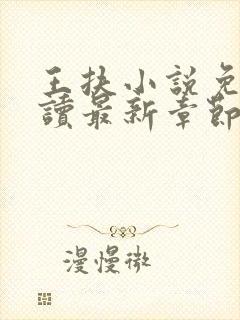 王扶小說免
讀最新章節
漫慢微